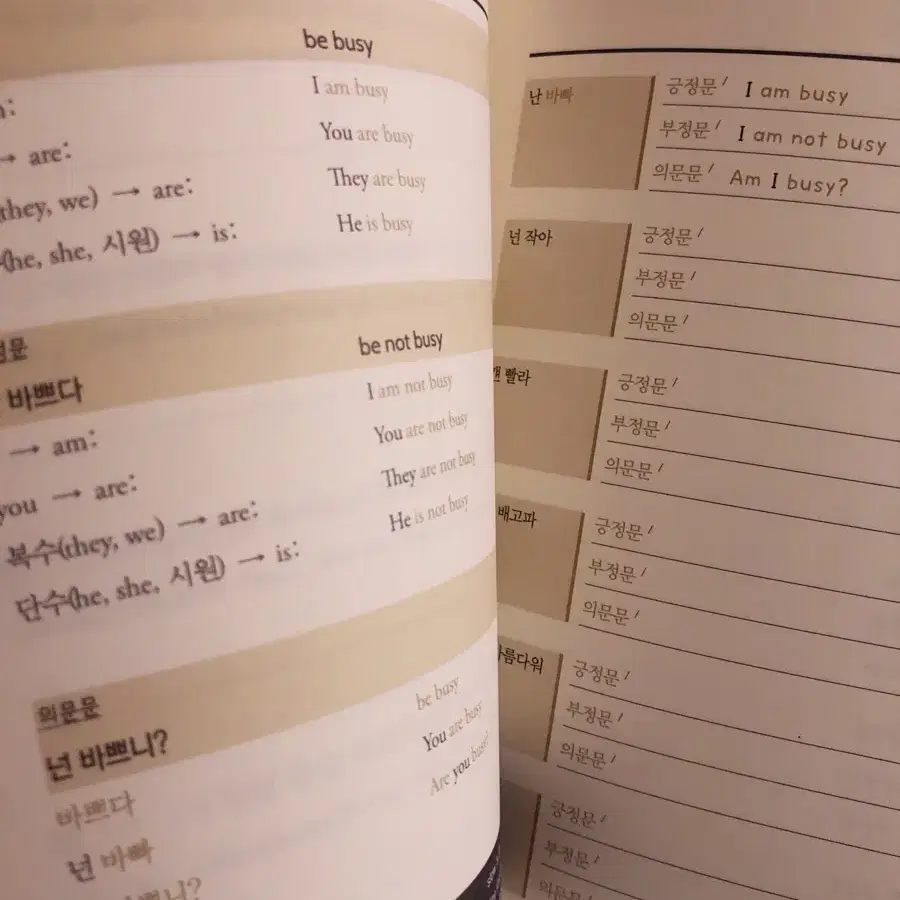 be busy
I am busy
→ are:
You are busy
(they, we) → are:
They are busy
(he, she, 시원) → is:
He is busy
바쁘다
be not busy
→ am:
I am not busy
you → are:
You are not busy
복수(they, we) → are:
They are not busy
단수(he, she, 시원) → is:
He is not busy
의문문
넌 바쁘니?
be busy
바쁘다
You are busy
넌 바빠
Are you busy?
난 바빠
긍정문/ I am busy
부정문/ I am not busy
의문문/ Am I busy?
넌 작아
긍정문/
부정문/
의문문/
빨라
긍정문/
부정문/
의문문/
배고파
긍정문/
부정문/
의문문/
긍정문/
부정문/
의문문/
긍정문/
부정문/
의문문/